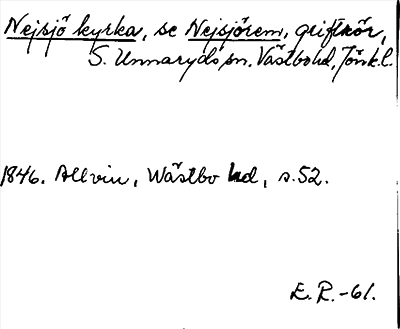 Nejsjö kyrka, se Nejsjörem, griftrör,
S. Unnaryds sn. Västbo hd, Jönk.l.
1846. Allvin, Wästbo hd, s.52.
E.R.-61.